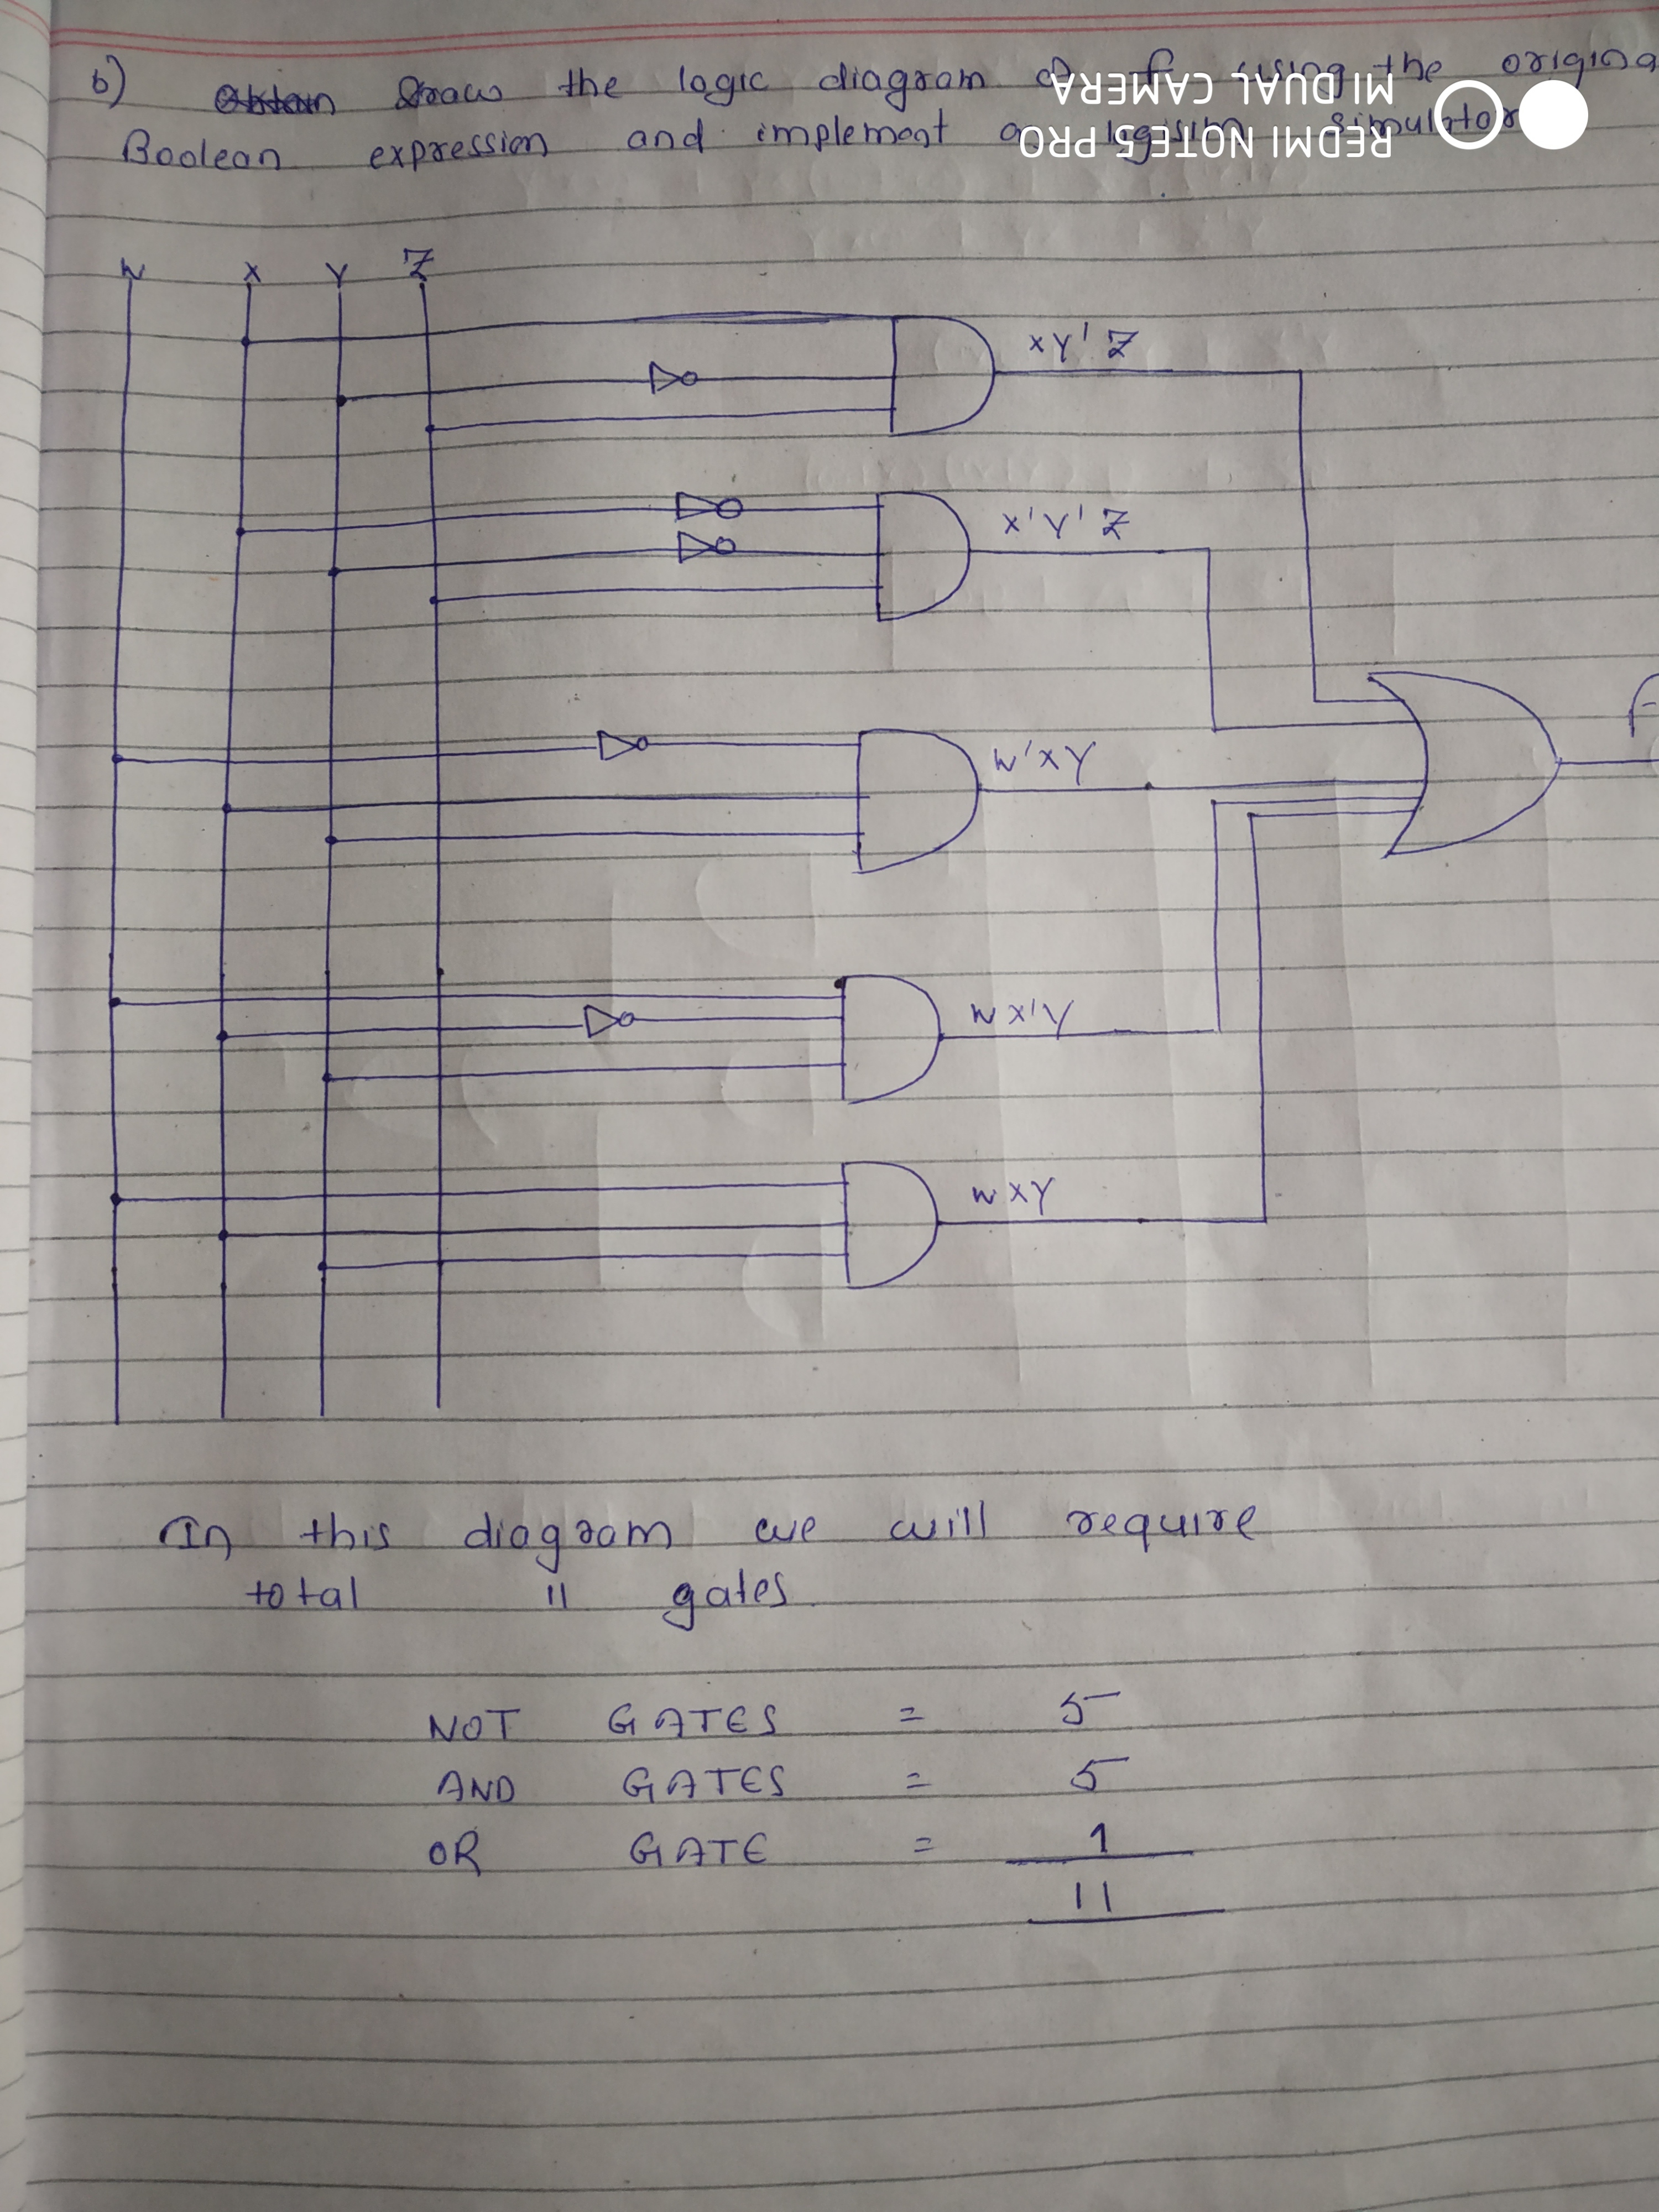 b) Draw the logic diagram of F using the origina
Boolean expression and implement logisim simulator
REDMI NOTE 5 PRO
MI DUAL CAMERA
W X Y Z
XY'Z
X'Y'Z
F
W'XY
WX'Y
WXY
In this diagram we will require
total 11 gates.
NOT GATES = 5
AND GATES = 5
OR GATE = 1
11